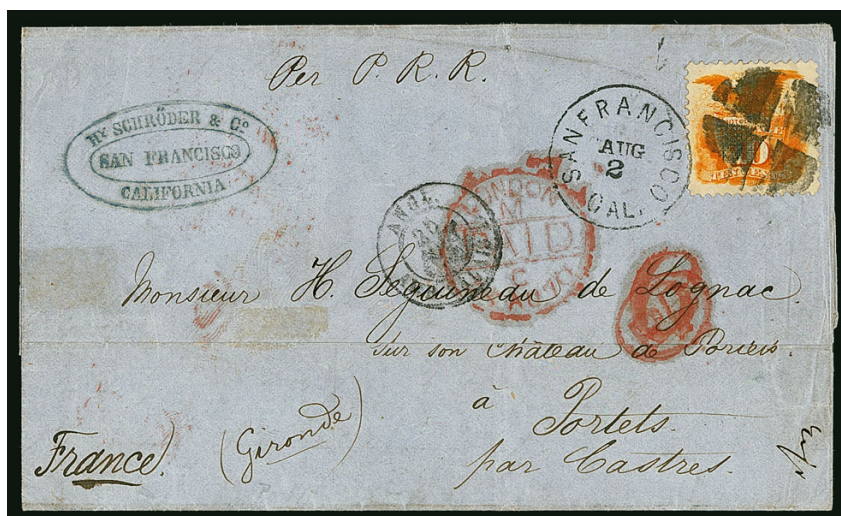 Per P. R. R.
HY SCHRÖDER & Co
SAN FRANCISCO
CALIFORNIA
SAN FRANCISCO
AUG
2
CAL.
10
ANGL.
LONDON
M
PAID
Monsieur H. Seguineau de Lognac
sur son Château de
à Portets.
par Castres.
(Gironde)
France.